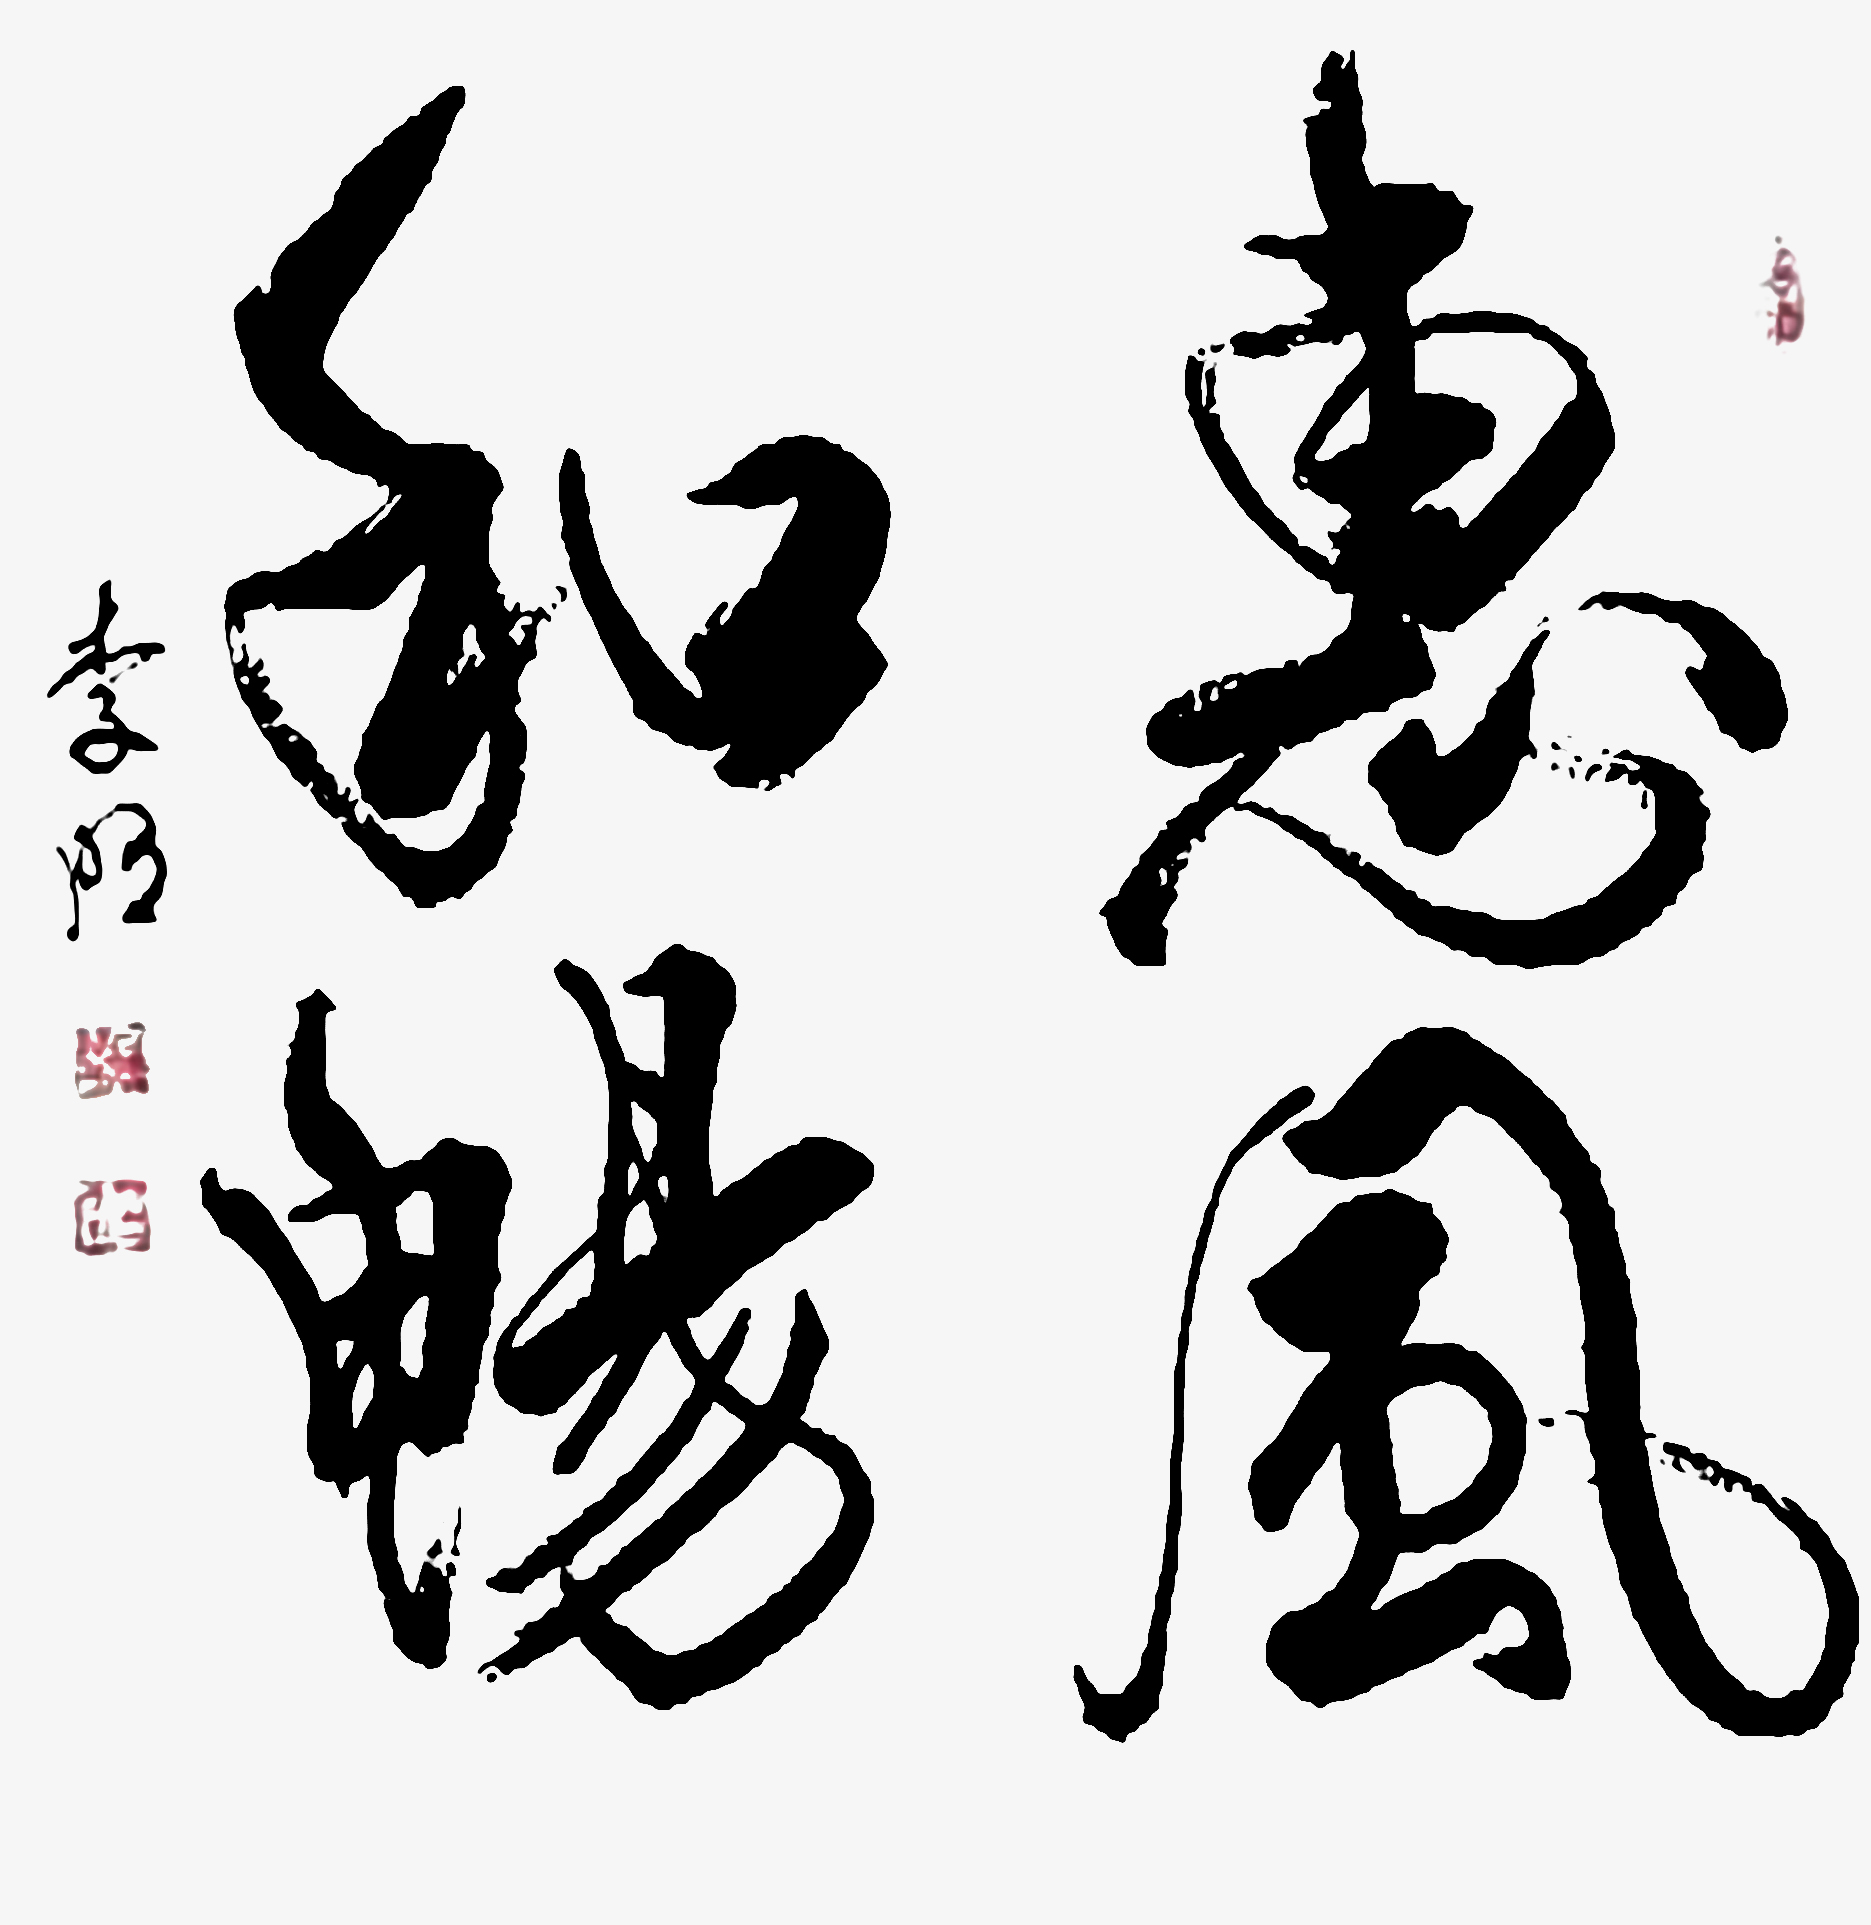 惠風
和暢
李明